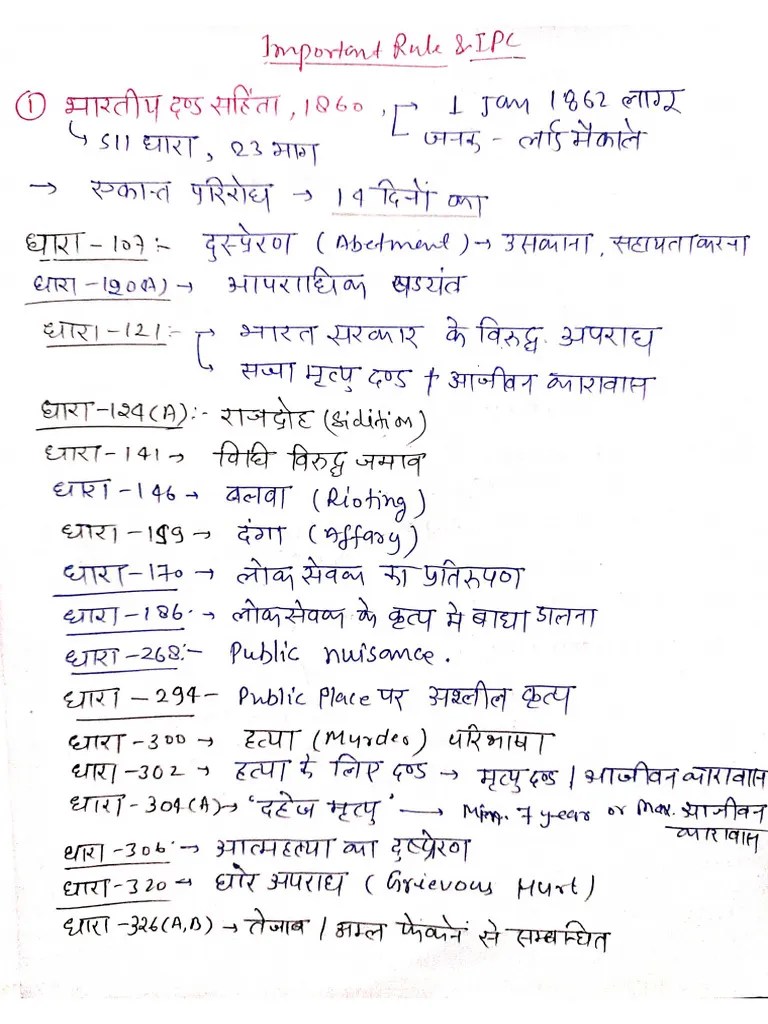 Important Rule & IPC
① भारतीय दण्ड संहिता, 1860, → 1 Jan 1862 लागू
↳ 511 धारा, 23 भाग जनक - लॉर्ड मैकाले
→ एकान्त परिरोध → 14 दिनों का
धारा-107:- दुस्प्रेरण (Abetment) → उसकाना, सहायता करना
धारा-120(A) → आपराधिक षडयंत
धारा-121:- → भारत सरकार के विरुद्ध अपराध
↳ सजा मृत्यु दण्ड + आजीवन कारावास
धारा-124(A):- राजद्रोह (Sidition)
धारा-141 → विधि विरुद्ध जमाव
धारा-146 → बलवा (Rioting)
धारा-159 → दंगा (Affary)
धारा-170 → लोक सेवक का प्रतिरुपण
धारा-186 → लोकसेवक के कृत्य मे बाधा डालना
धारा-268:- Public nuisance.
धारा-294- Public Place पर अश्लील कृत्य
धारा-300 → हत्या (Murder) परिभाषा
धारा-302 → हत्या के लिए दण्ड → मृत्यु दण्ड / आजीवन कारावास
धारा-304(A) → 'दहेज मृत्यु' → Min. 7 year or Max. आजीवन
कारावास
धारा-306 → आत्महत्या का दुष्प्रेरण
धारा-320 → घोर अपराध (Grievous Hurt)
धारा-326(A,B) → तेजाब / अम्ल फेंकनें से सम्बन्धित